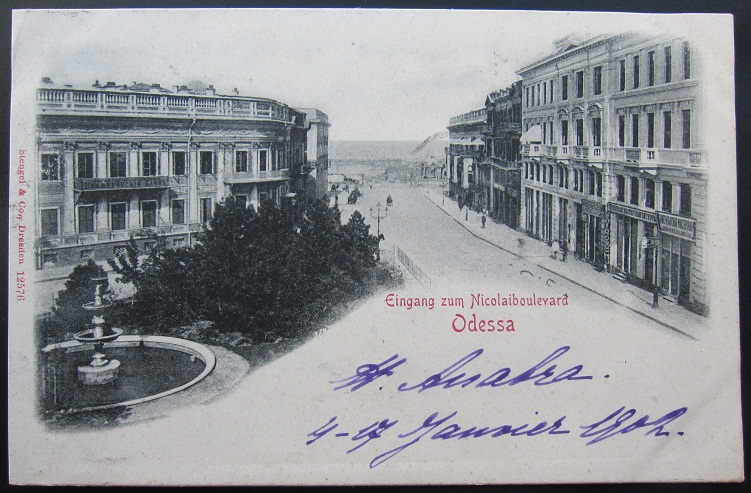 Stengel & Co., Dresden 12576
Eingang zum Nicolaiboulevard
Odessa
Anatra.
4-17 Janvier 1902.